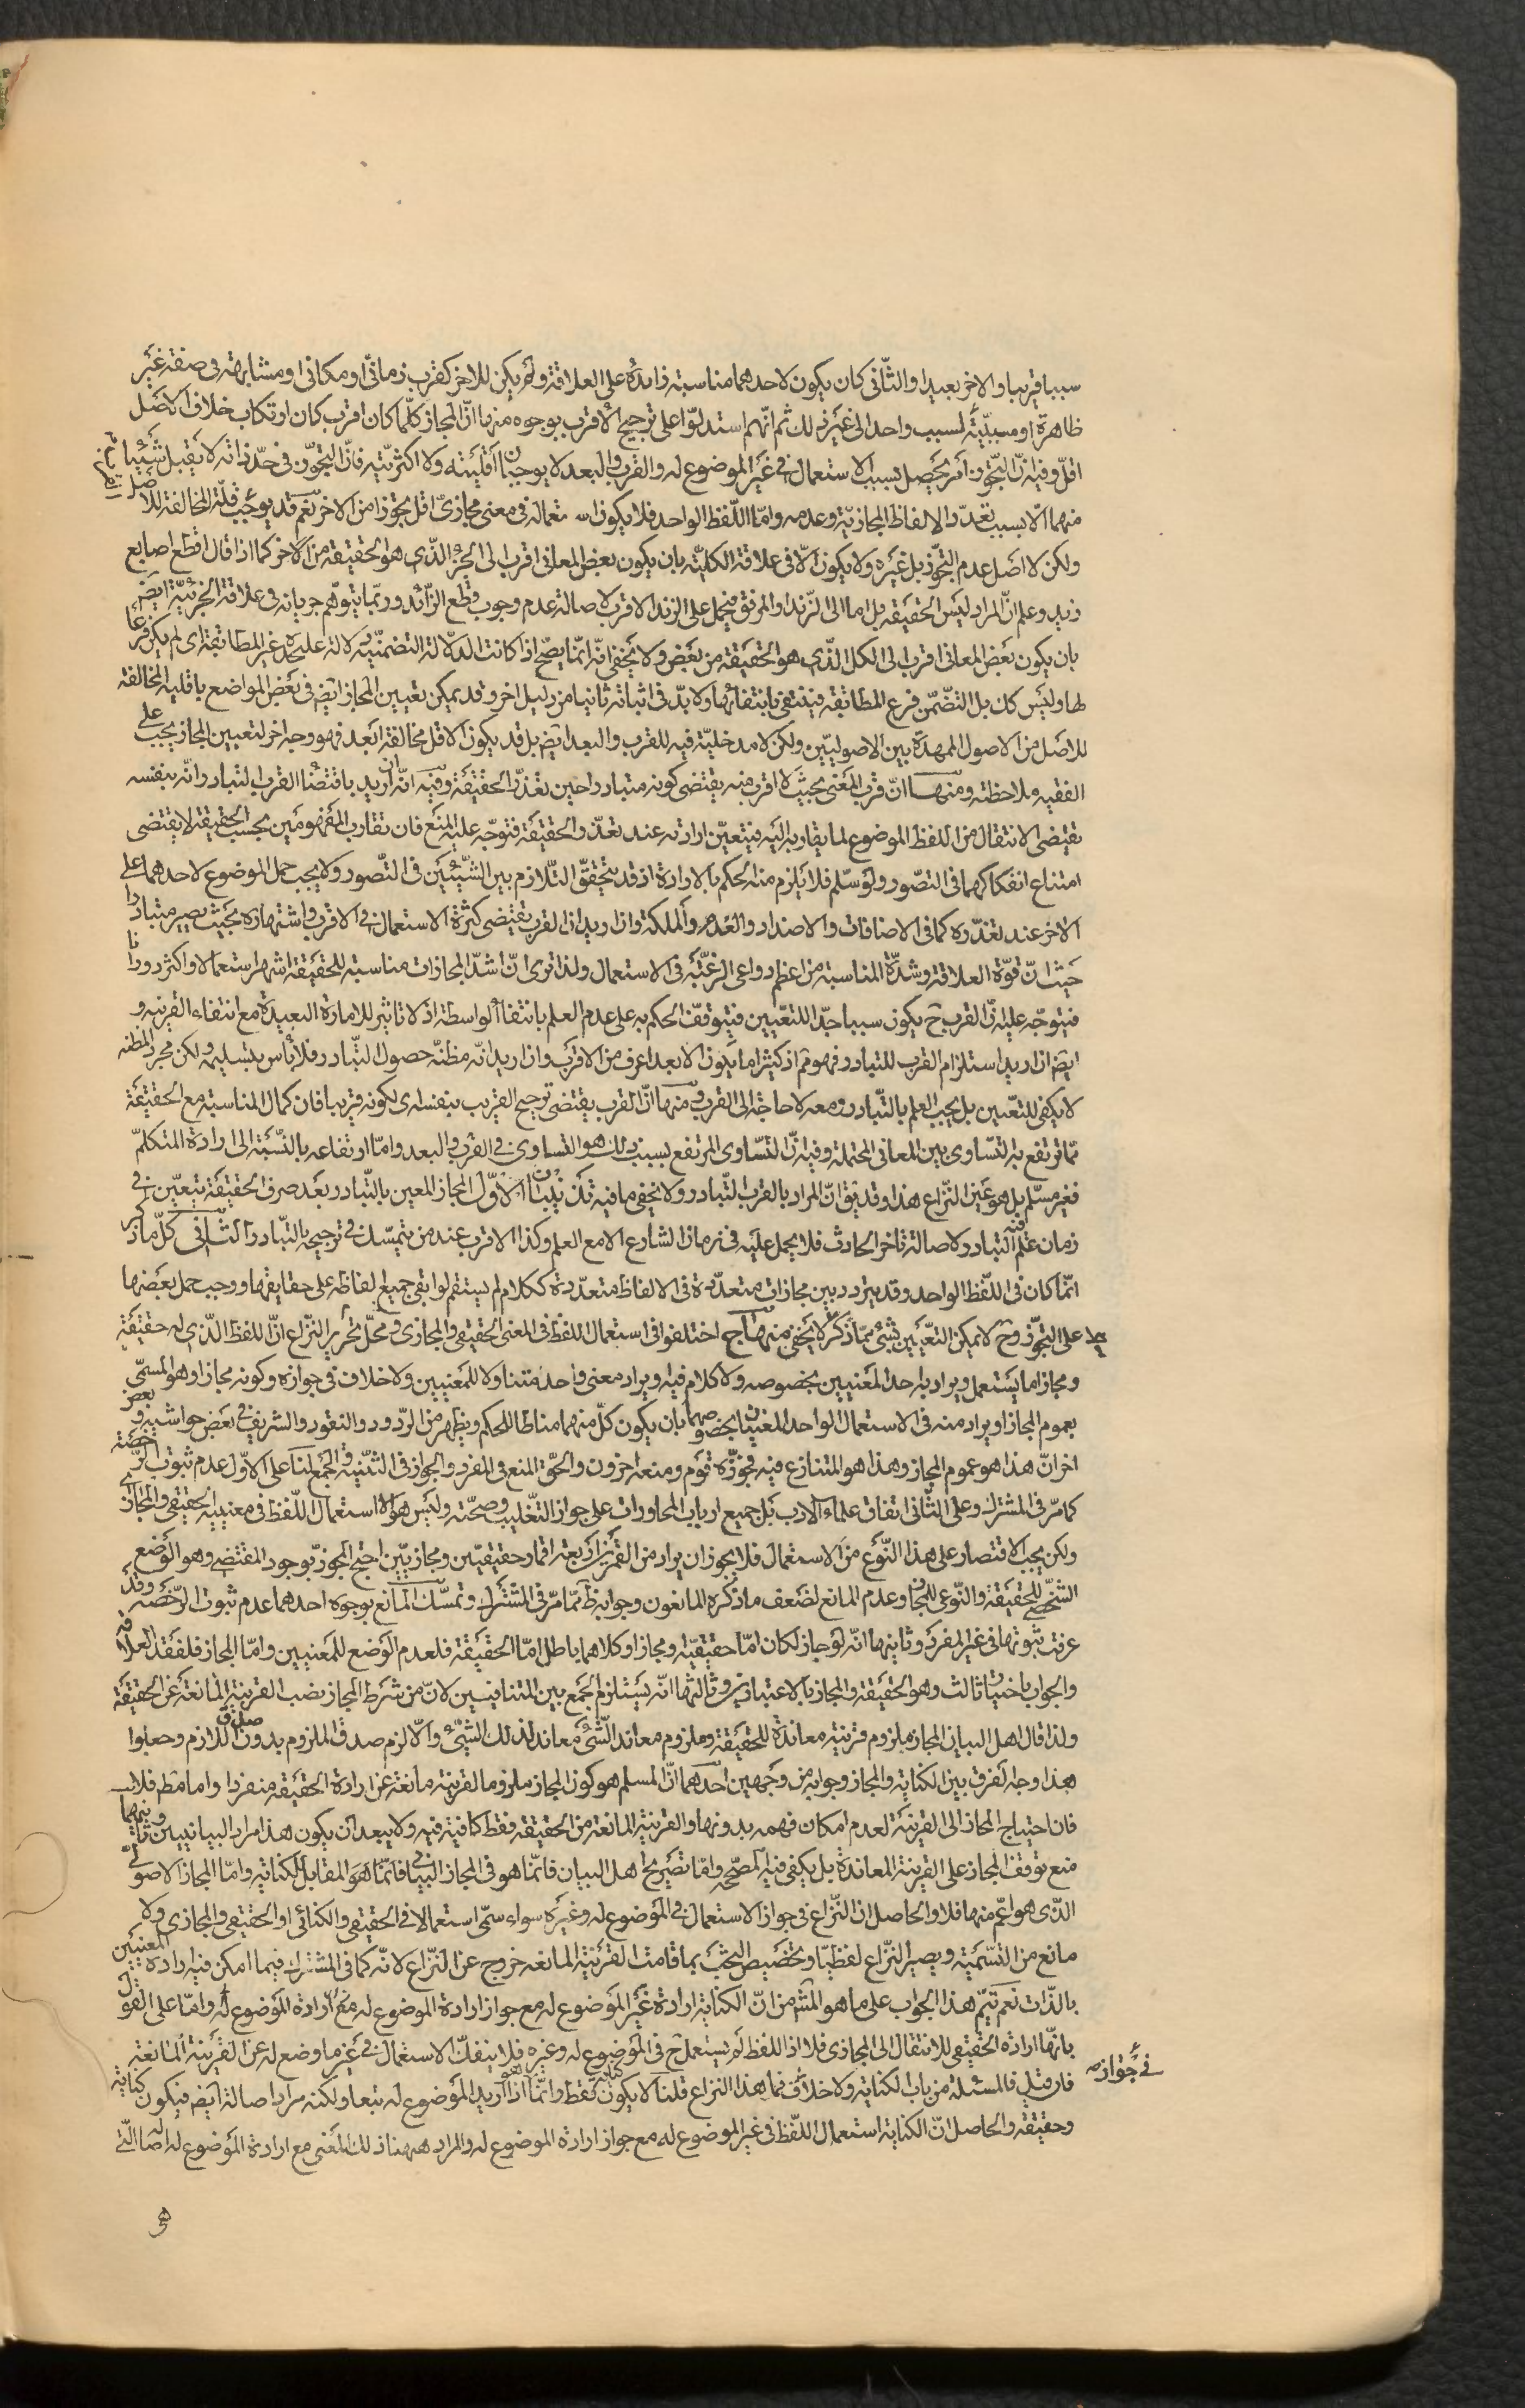 سببا قريبا والاخر بعيدا والثاني كان يكون لاحدهما مناسبته زايدة على العلاقة ولم يكن للاخر كقرب زماني او مكاني او مشابهة في صفة غير
ظاهرة او مسببية لسبب واحد الى غير ذلك ثم انهم استدلوا على ترجيح الاقرب بوجوه منها ان المجاز كلما كان اقرب كان ارتكاب خلاف الاصل
اقل وفيه ان التجوز امر يحصل بسبب الاستعمال في غير الموضوع له والقرب والبعد لا يوجبان اقليته ولا اكثريته فان التجوز في حد ذاته لا يقبل شيئا
منهما الا بسبب تعدد الالفاظ المجازية وعدمه واما اللفظ الواحد فلا يكون استعماله في معنى مجازي اقل تجوزا من الاخر نعم قد يوجب قلة المخالفة للاصل
ولكن لا اصل عدم التجوز بل غيره ولا يكون الا في علاقة الكلية بان يكون بعض المعاني اقرب الى الجزء الذي هو الحقيقة من الاخر كما اذا قال اقطع اصابع
زيد وعلم ان المراد ليس الحقيقة بل اما الى الزند او المرفق فيحمل على الزند الاقرب لاصالة عدم وجوب قطع الزائد وربما يتوهم جريانه في علاقة الجزئية ايض
بان يكون بعض المعاني اقرب الى الكل الذي هو الحقيقة من بعض ولا يخفى انه انما يصح اذا كانت الدلالة التضمنية دلالة عليحدة غير المطابقة اي لم يكن فرعا
لها وليس كك بل التضمن فرع المطابقة فينتفى بانتفائها ولا بد في اثباته ثانيا من دليل اخر وقد يمكن تعيين المجاز ايض في بعض المواضع باقلية المخالفة
للاصل من الاصول الممهدة بين الاصوليين ولكن لا مدخلية فيه للقرب والبعد ايض بل قد يكون الاقل مخالفة ابعد فهو وجه اخر لتعيين المجاز يجب على
الفقيه ملاحظته ومنها ان قرب المعنى بحيث لا اقرب منه يقتضى كونه متبادرا حين تعذر الحقيقة وفيه انه ان اريد باقتضاء القرب التبادر وانه بنفسه
يقتضى الانتقال من اللفظ الموضوع لما يقاربه اليه فيتعين ارادته عند تعذر الحقيقة فتوجه عليه المنع فان تقارب المفهومين بحسب الحقيقة لا يقتضى
امتناع انفكاكهما في التصور ولو سلم فلا يلزم منه الحكم بالارادة اذ قد يتحقق التلازم بين الشيئين في التصور ولا يجب حمل الموضوع لاحدهما على
الاخر عند تعذره كما في الاضافات والاضداد والعدم والملكة وان اريد ان القرب يقتضى كثرة الاستعمال في الاقرب واشتهاره بحيث يصير متبادرا
حيث ان قوة العلاقة وشدة المناسبة من اعظم دواعى الرغبة في الاستعمال ولذا ترى ان اشد المجازات مناسبة للحقيقة اشهر استعمالا واكثر دورانا
فيتوجه عليه ان القرب ح يكون سببا جدا للتعيين فيتوقف الحكم به على عدم العلم بانتفاء الواسطة اذ لا تاثير للامارة البعيدة مع انتفاء القريبه و
ايض ان اريد استلزام القرب للتبادر فهو مم اذ كثيرا ما يكون الابعد اعرف من الاقرب وان اريد انه مظنة حصول التبادر فلا باس بتسليمه ولكن مجرد المظنه
لا يكفى للتعيين بل يجب العلم بالتبادر ومعه لا حاجة الى القرب ومنها ان القرب يقتضى ترجيح القريب بنفسه اى لكونه قريبا فان كمال المناسبة مع الحقيقة
مما ترتفع به التساوى بين المعاني المحتملة وفيه ان التساوى المرتفع بسبب ذلك هو التساوى في القرب والبعد واما ارتفاعه بالنسبة الى ارادة المتكلم
فغير مسلم بل هو عين النزاع هذا وقد يق ان المراد بالقرب التبادر ولا يخفى ما فيه تذنيبان الاول المجاز المعين بالتبادر بعد صرف الحقيقة يتعين في
زمان علم فيه التبادر لاصالة تاخر الحادث فلا يحمل عليه في زمان الشارع الا مع العلم وكذا الاقرب عند من يتمسك في ترجيحه بالتبادر الثاني كل ما ذكر
انما كان في اللفظ الواحد وقد يتردد بين مجازات متعددة في الالفاظ متعددة ككلام لم يستقم لو ابقى جميع الفاظه على حقايقها ووجب حمل بعضها
على التجوز وح لا يمكن التعيين بشيء مما ذكر كما لا يخفى منهاج اختلفوا في استعمال اللفظ في المعنى الحقيقى والمجازى ومحل تحرير النزاع ان اللفظ الذي له حقيقة
ومجاز اما يستعمل ويراد به احد المعنيين بخصوصه ولا كلام فيه او يراد معنى واحد متناولا للمعنيين ولا خلاف في جوازه وكونه مجازا وهو المسمى
بعموم المجاز او يراد منه في الاستعمال الواحد المعنيان بخصوصهما بان يكون كل منهما مناطا للحكم ويظهر من الردود والنقود والشريف في بعض حواشيه وبعض
اخر ان هذا هو عموم المجاز وهذا هو المتنازع فيه فجوزه قوم ومنعه اخرون والحق المنع في المفرد والجواز في التثنية والجمع لنا على الاول عدم ثبوت الرخصة
كما مر في المشترك وعلى الثاني اتفاق علماء الادب بل جميع ارباب المحاورات على جواز التغليب وصحته وليس هو الا استعمال اللفظ في معنييه الحقيقى والمجازى
ولكن يجب الاقتصار على هذا النوع من الاستعمال فلا يجوز ان يراد من القمرين اربعة اقمار حقيقيين ومجازيين احتج المجوز بوجود المقتضى وهو الوضع
الشخصى للحقيقة والنوعى للمجاز وعدم المانع لضعف ما ذكره المانعون وجوابه ظ مما مر في المشترك وتمسك المانع بوجوه احدها عدم ثبوت الرخصة وقد
عرفت ثبوتها في غير المفرد وثانيها انه لو جاز لكان اما حقيقة او مجازا وكلاهما باطل اما الحقيقة فلعدم الوضع للمعنيين واما المجاز فلفقد العلاقة
والجواب باختيار ثالث وهو الحقيقة والمجاز بالاعتبارين وثالثها انه يستلزم الجمع بين المتنافيين لان من شرط المجاز نصب القرينة المانعة عن الحقيقة
ولذا قال اهل البيان المجاز ملزوم قرينة معاندة للحقيقة وملزوم معاند الشئ معاند لذلك الشئ والا لزم صدق الملزوم بدون صدق اللازم وجعلوا
هذا وجه الفرق بين الكناية والمجاز وجوابه من وجهين احدهما ان المسلم هو كون المجاز ملزوما لقرينة مانعة عن ارادة الحقيقة منفردا واما مط فلا
فان احتياج المجاز الى القرينة لعدم امكان فهمه بدونها والقرينة المانعة من الحقيقة فقط كافية فيه ولا يبعد ان يكون هذا مراد البيانيين وثانيهما
منع توقف المجاز على القرينة المعاندة بل يكفى فيه المصححه واما تصريح اهل البيان فانما هو في المجاز البياني فانما هو المقابل للكناية واما المجاز الاصولى
الذي هو اعم منها فلا والحاصل ان النزاع في جواز الاستعمال في الموضوع له وغيره سواء سمى استعمالا في الحقيقى والكنائى او الحقيقى والمجازى ولا
مانع من التسمية ويصير النزاع لفظيا وتخصيص البحث بما قامت القرينة المانعة خروج عن النزاع لانه كما في المشترك فيما امكن فيه ارادة المعنيين
بالذات نعم يتم هذا الجواب على ما هو المش من ان الكناية ارادة غير الموضوع له مع جواز ارادة الموضوع له مع ارادة الموضوع له واما على القول
بانها ارادة الحقيقى للانتقال الى المجازى فلا اذ اللفظ لم يستعمل ح في الموضوع له وغيره فلا ينفك الاستعمال في غير ما وضع له عن القرينة المانعة
فان قيل فالمسئلة من باب الكناية ولا خلاف في جوازه فما هذا النزاع قلنا لا يكون كناية فقط وانما هو اذا اريد الموضوع له تبعا ولكنه مراد اصالة ايض فيكون كناية
وحقيقة والحاصل ان الكناية استعمال اللفظ في غير الموضوع له مع جواز ارادة الموضوع له والمراد ههنا ذلك المعنى مع ارادة الموضوع له اصالة التي
هى